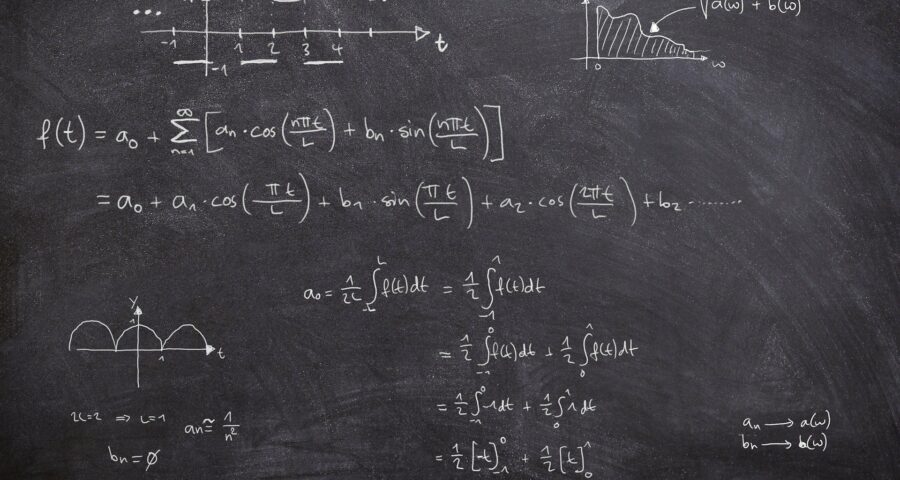 ...
-1 1 2 3 4 t
-1
√a(ω) + b(ω)
0 ω
f(t) = a₀ + ∑ₙ₌₁^∞ [aₙ · cos(nπt/L) + bₙ · sin(nπt/L)]
= a₀ + a₁ · cos(πt/L) + b₁ · sin(πt/L) + a₂ · cos(2πt/L) + b₂ ........
a₀ = 1/2L ∫₋L^L f(t)dt = 1/2 ∫₋₁^1 f(t)dt
y
1
1 t
= 1/2 ∫₋₁^0 f(t)dt + 1/2 ∫₀^1 f(t)dt
= 1/2 ∫₋₁^0 1dt + 1/2 ∫₀^1 1dt
2L=2 ⇒ L=1
aₙ ≅ 1/n²
bₙ = ∅
= 1/2 [-t]₋₁^0 + 1/2 [t]₀^1
aₙ → a(ω)
bₙ → b(ω)